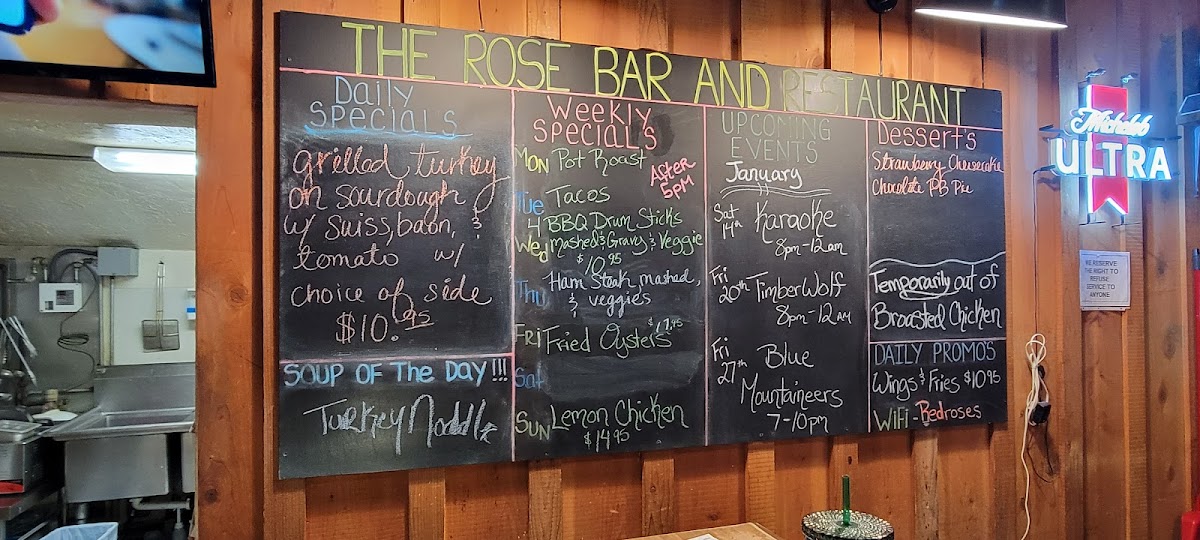 THE ROSE BAR AND RESTAURANT
Daily
SPECIALS
grilled turkey
on sourdough
w/ Swiss, bacon, &
tomato w/
choice of side
$10.95
SOUP OF THE DAY!!!
Turkey Noddle
Weekly
SPECIAL'S
After
5pm
MON Pot Roast
Tue Tacos
4 BBQ Drum Stick's
Wed Mashed & Gravy & Veggie
$10.95
Thu Ham Steak, mashed,
& veggies
FRI Fried Oysters
Sat
SUN Lemon Chicken
$14.95
UPCOMING
EVENTS
January
Sat
14th Karaoke
8pm-12am
Fri
20th TimberWolf
8pm-12AM
Fri
27th Blue
Mountaineers
7-10pm
Dessert's
Strawberry Cheesecake
Chocolate PB Pie
Temporarily out of
Broasted Chicken
DAILY PROMOS
Wings & Fries $10.95
WiFi- Redroses
Michelob
ULTRA
WE RESERVE
THE RIGHT TO
REFUSE
SERVICE TO
ANYONE